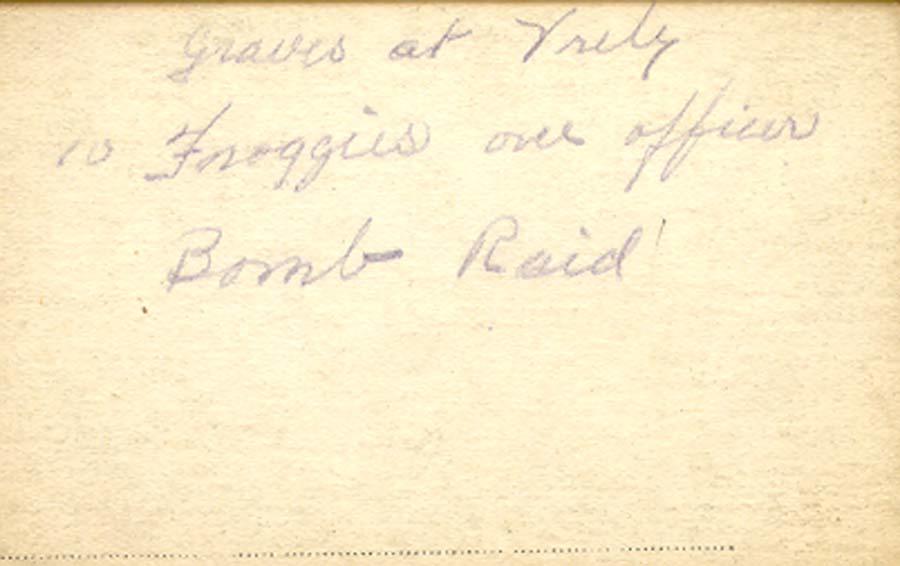 Graves at Vrely
10 Froggies one officer
Bomb Raid